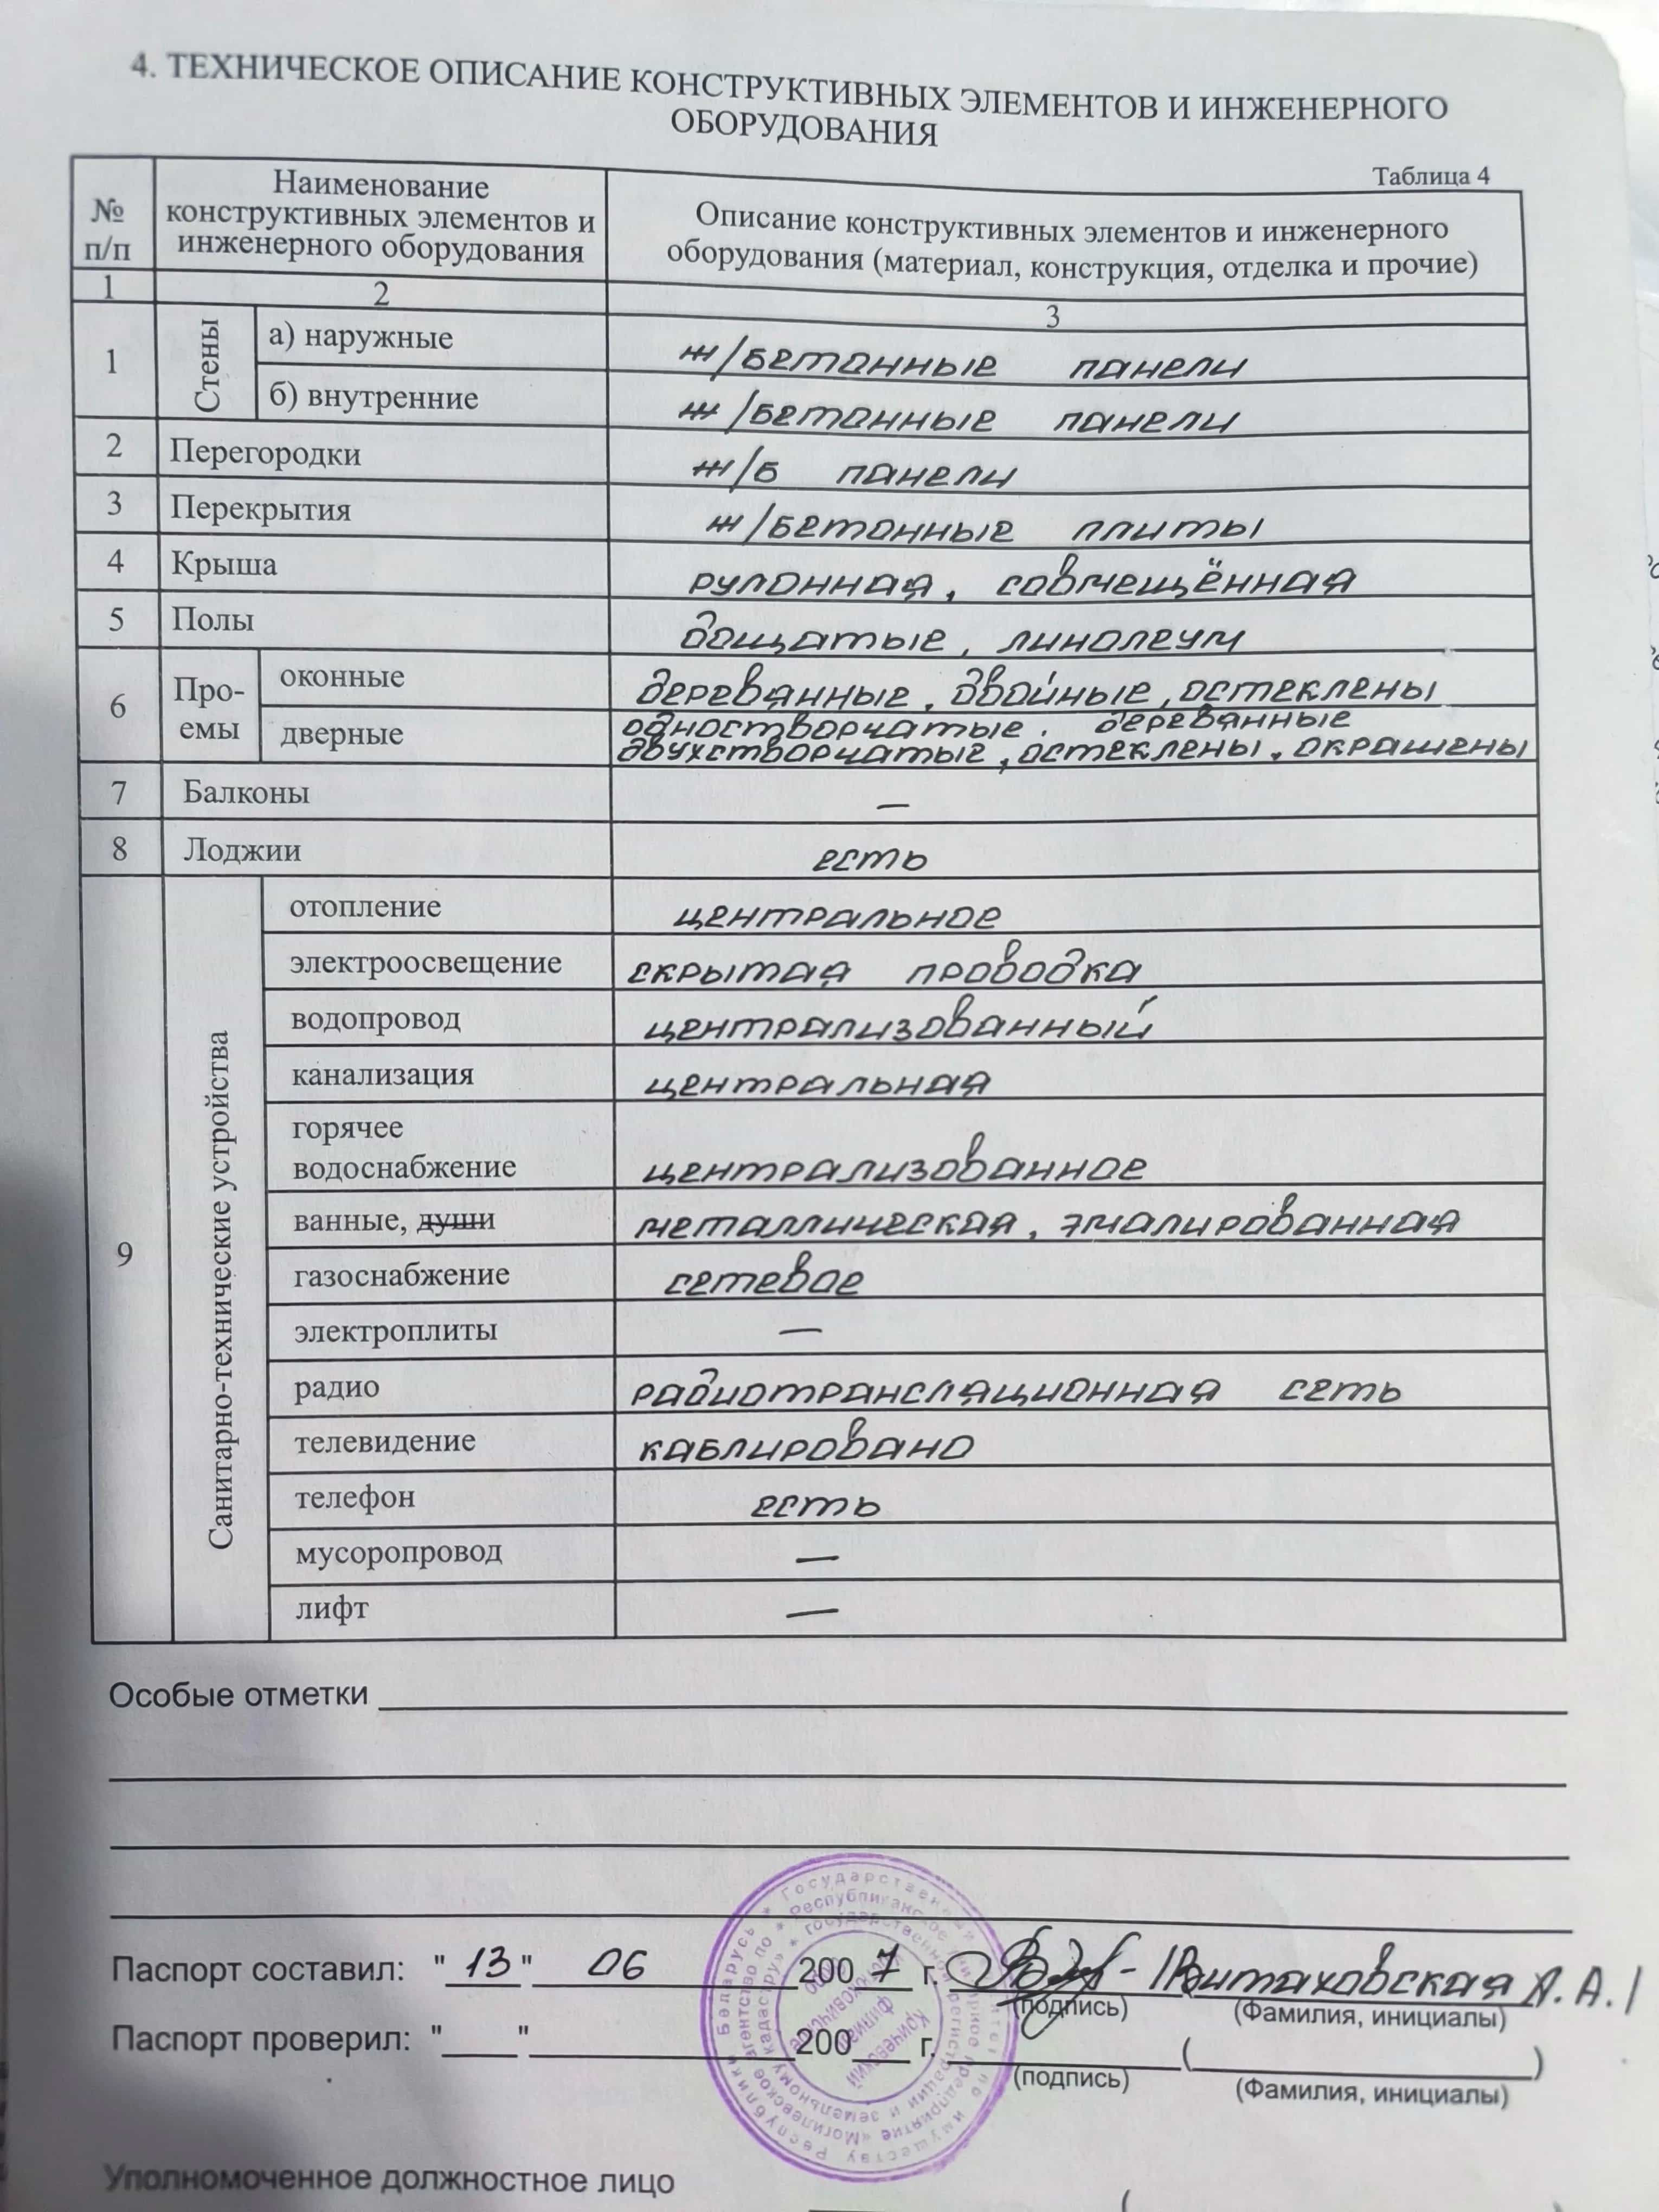 4. ТЕХНИЧЕСКОЕ ОПИСАНИЕ КОНСТРУКТИВНЫХ ЭЛЕМЕНТОВ И ИНЖЕНЕРНОГО
ОБОРУДОВАНИЯ
Таблица 4
№ п/п
Наименование конструктивных элементов и инженерного оборудования
Описание конструктивных элементов и инженерного оборудования (материал, конструкция, отделка и прочие)
1 2 3
1 Стены а) наружные ж/бетонные панели
б) внутренние ж/бетонные панели
2 Перегородки ж/б панели
3 Перекрытия ж/бетонные плиты
4 Крыша рулонная, совмещённая
5 Полы дощатые, линолеум
6 Про-емы оконные деревянные, двойные, остеклены
дверные одностворчатые. деревянные
двухстворчатые, остеклены, окрашены
7 Балконы —
8 Лоджии есть
9 Санитарно-технические устройства
отопление центральное
электроосвещение скрытая проводка
водопровод централизованный
канализация центральная
горячее
водоснабжение централизованное
ванные, души металлическая, эмалированная
газоснабжение сетевое
электроплиты —
радио радиотрансляционная сеть
телевидение каблировано
телефон есть
мусоропровод —
лифт —
Особые отметки
Паспорт составил: "13" 06 2007 г. Витаховская А.А.
(подпись) (Фамилия, инициалы)
Паспорт проверил: "___" 200___ г. ( )
(подпись) (Фамилия, инициалы)
Уполномоченное должностное лицо